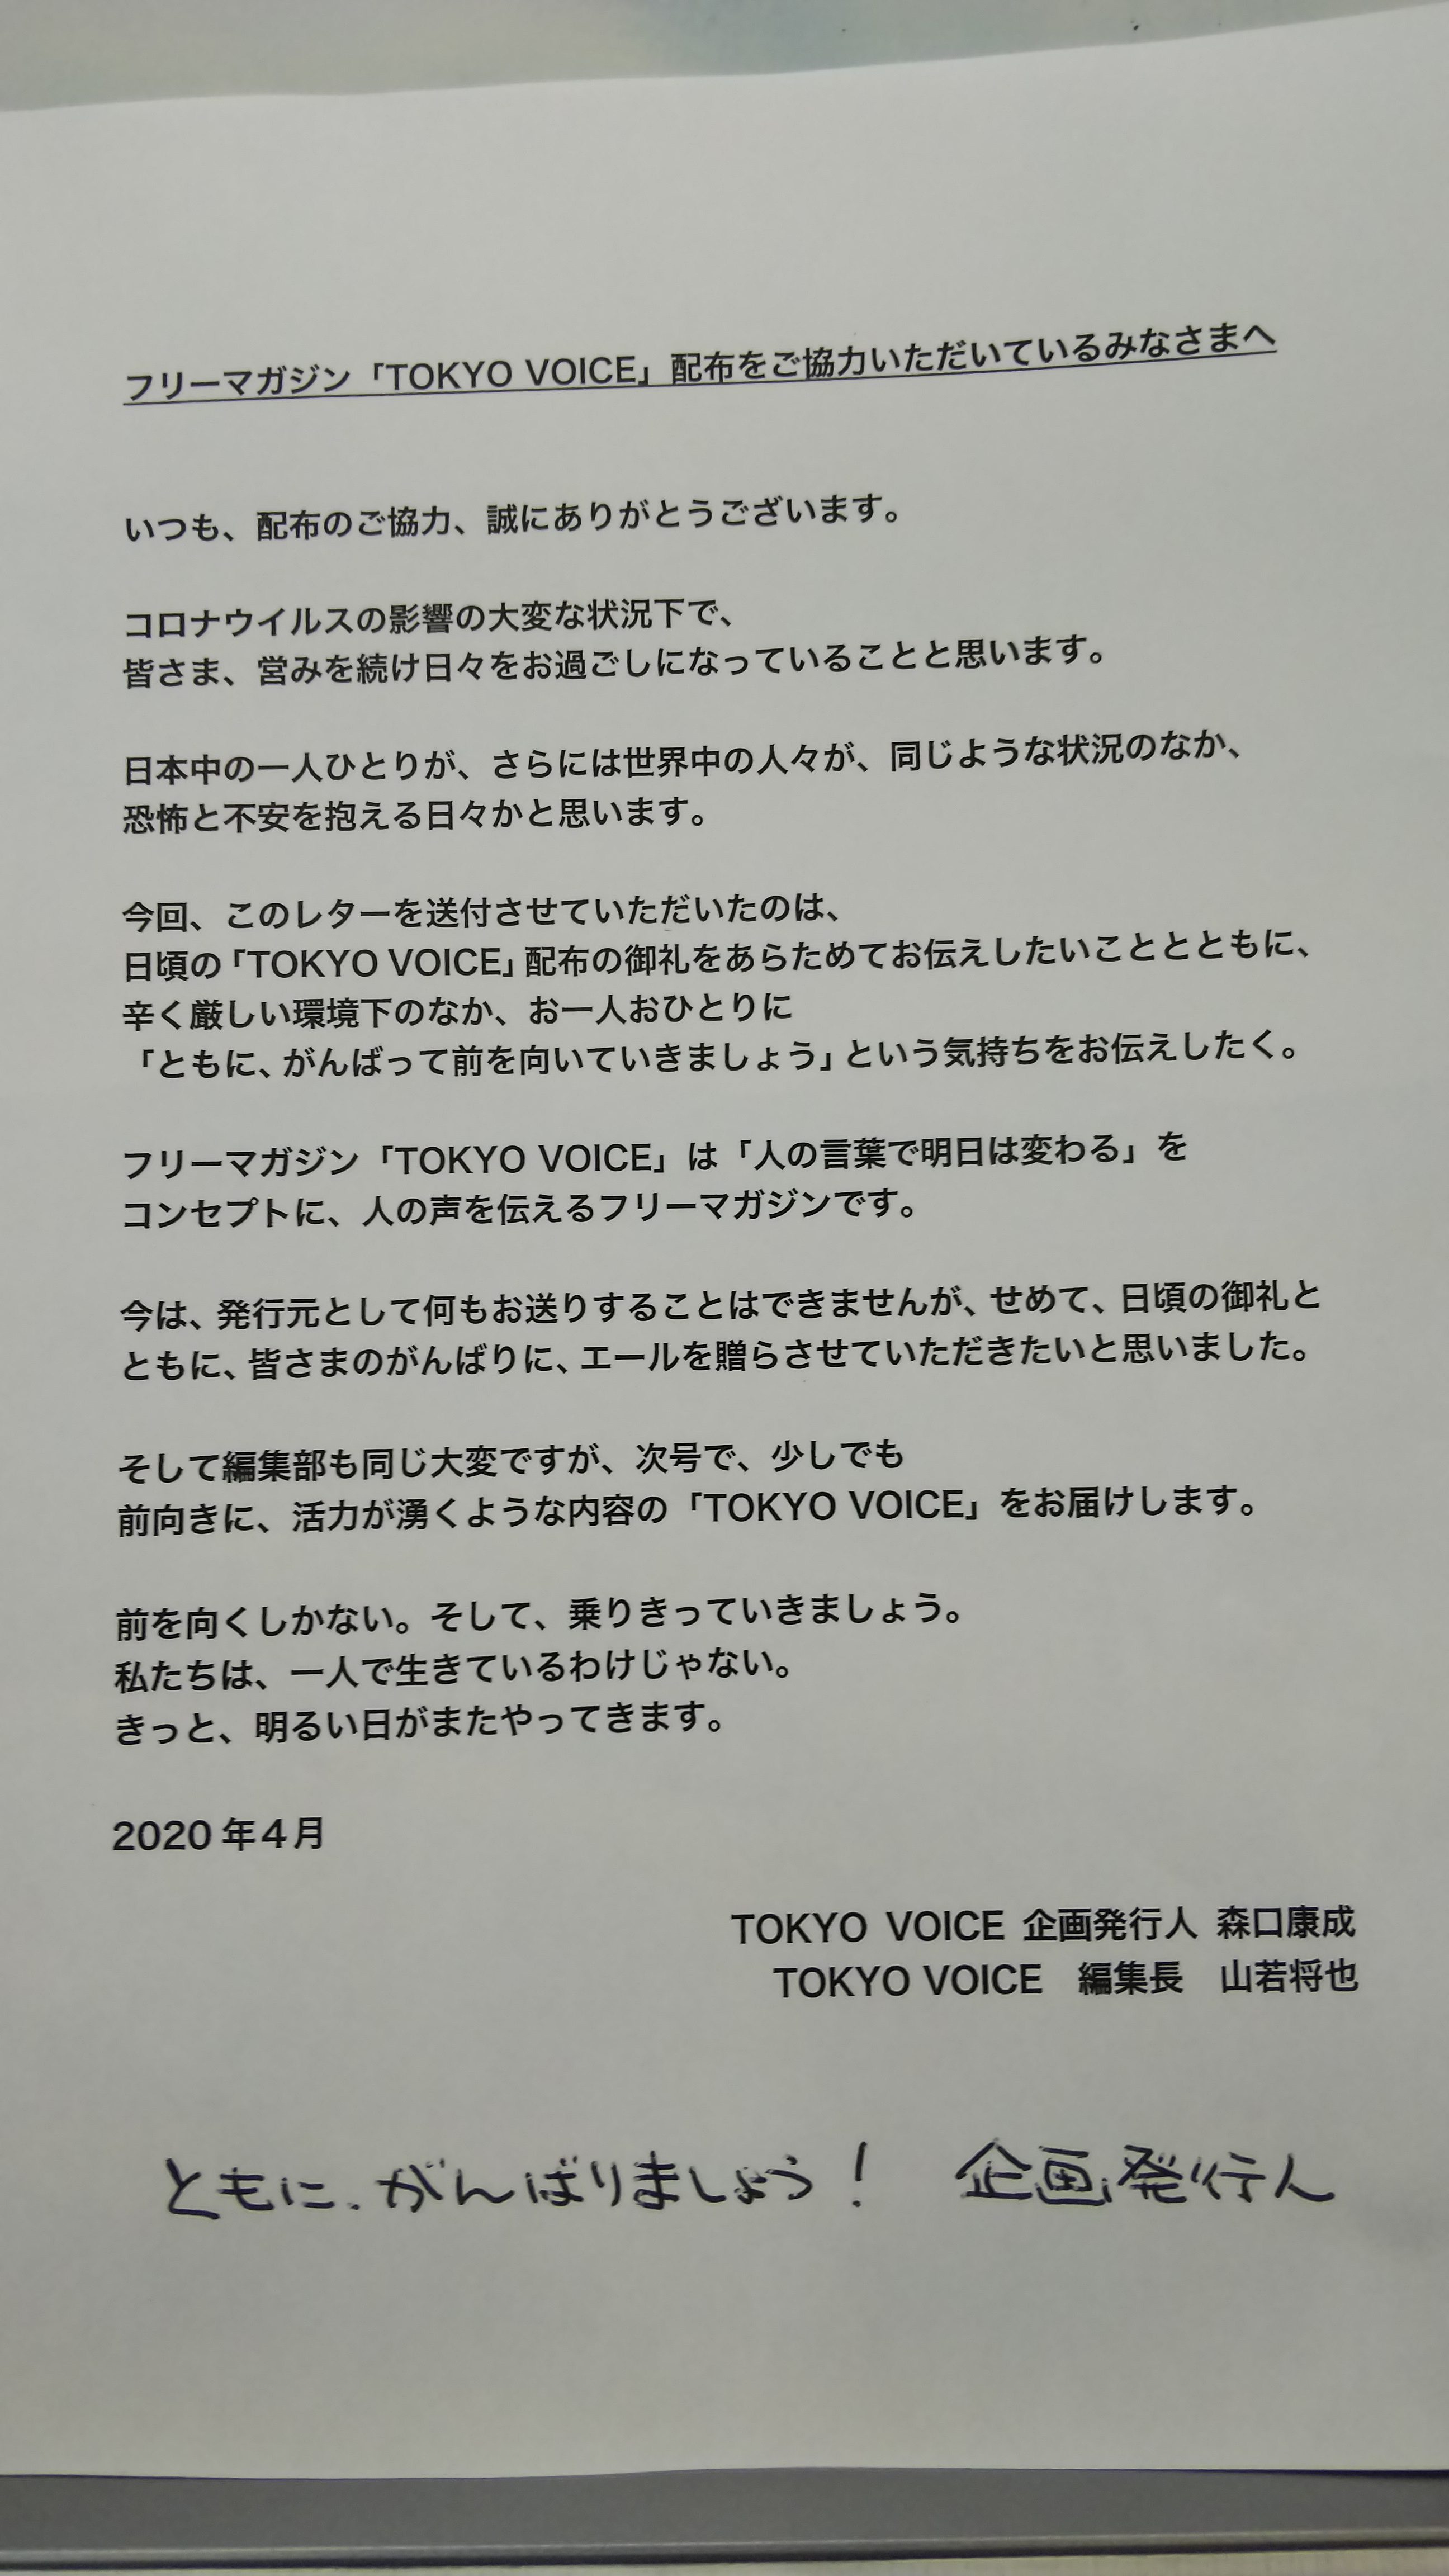 フリーマガジン「TOKYO VOICE」配布をご協力いただいているみなさまへ
いつも、配布のご協力、誠にありがとうございます。
コロナウイルスの影響の大変な状況下で、
皆さま、営みを続け日々をお過ごしになっていることと思います。
日本中の一人ひとりが、さらには世界中の人々が、同じような状況のなか、
恐怖と不安を抱える日々かと思います。
今回、このレターを送付させていただいたのは、
日頃の「TOKYO VOICE」配布の御礼をあらためてお伝えしたいこととともに、
辛く厳しい環境下のなか、お一人おひとりに
「ともに、がんばって前を向いていきましょう」という気持ちをお伝えしたく。
フリーマガジン「TOKYO VOICE」は「人の言葉で明日は変わる」を
コンセプトに、人の声を伝えるフリーマガジンです。
今は、発行元として何もお送りすることはできませんが、せめて、日頃の御礼と
ともに、皆さまのがんばりに、エールを贈らさせていただきたいと思いました。
そして編集部も同じ大変ですが、次号で、少しでも
前向きに、活力が湧くような内容の「TOKYO VOICE」をお届けします。
前を向くしかない。そして、乗りきっていきましょう。
私たちは、一人で生きているわけじゃない。
きっと、明るい日がまたやってきます。
2020年4月
TOKYO VOICE 企画発行人 森口康成
TOKYO VOICE 編集長 山若将也
ともに、がんばりましょう！ 企画発行人